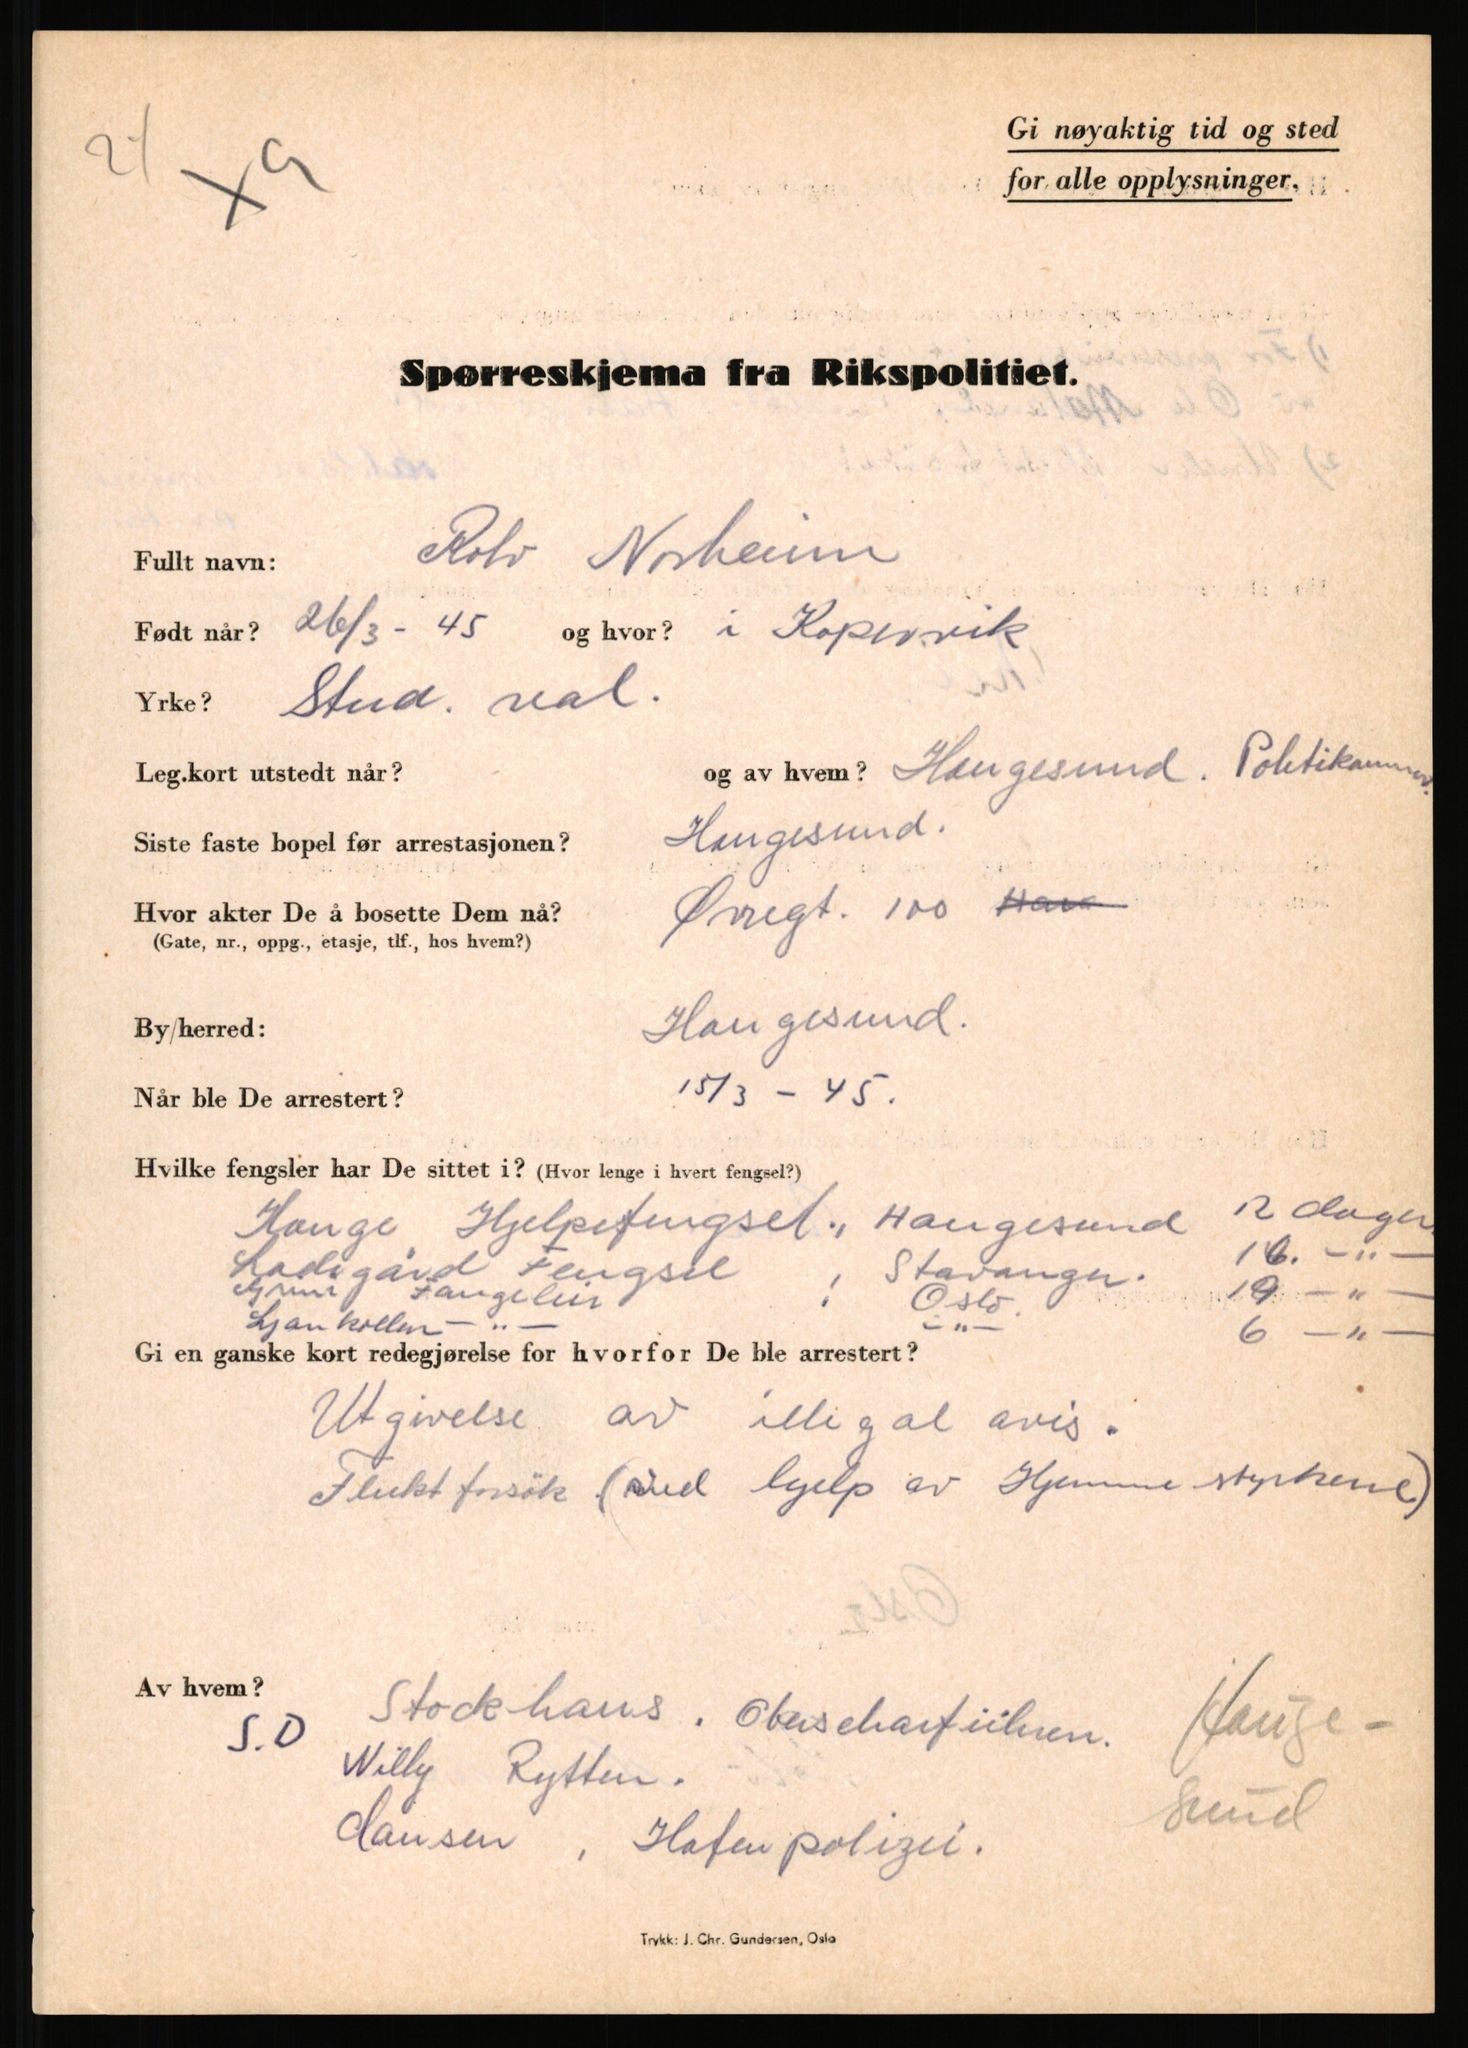 21
X G
Gi nøyaktig tid og sted
for alle opplysninger.
Spørreskjema fra Rikspolitiet.
Fullt navn: Rolv Norheim
Født når? 26/3 - 45 og hvor? i Kopervik
Yrke? Stud. real.
Leg.kort utstedt når? og av hvem? Haugesund. Politikammer.
Siste faste bopel før arrestasjonen? Haugesund.
Hvor akter De å bosette Dem nå? Øvregt. 100
(Gate, nr., oppg., etasje, tlf., hos hvem?)
By/herred: Haugesund.
Når ble De arrestert? 15/3 - 45.
Hvilke fengsler har De sittet i? (Hvor lenge i hvert fengsel?)
Hauge Hjelpefengsel, Haugesund 12 dager
Ladegård Fengsel, Stavanger. 16. - " -
Grini Fangeleir, Oslo. 19 - " -
Ljankollen - " - - " - 6 - " -
Gi en ganske kort redegjørelse for hvorfor De ble arrestert?
Utgivelse av illigal avis.
Fluktforsök (ved hjelp av Hjemmestyrkene)
Av hvem? Stockhaus. Oberscharführer. Hauge-
S.D Willy Rytter. sund
Hansen, Hafenpolizei.
Trykk: J. Chr. Gundersen, Oslo